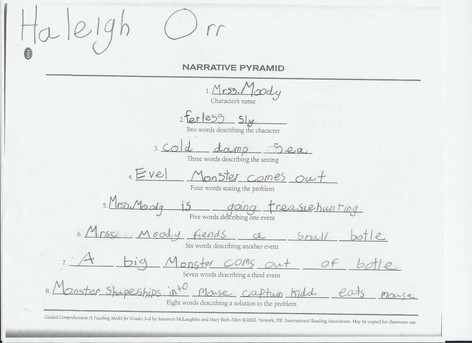 Haleigh Orr
NARRATIVE PYRAMID
1. Mrss. Moody
Character's name
2. ferless sly
Two words describing the character
3. cold damp sea
Three words describing the setting
4. Evel Monster comes out
Four words stating the problem
5. Mrss. Moody is going treasuehunting
Five words describing one event
6. Mrss. Moody fiends a small botle
Six words describing another event
7. A big Monster coms out of botle
Seven words describing a third event
8. Monster shapeships into mouse captun kidd eats mouse
Eight words describing a solution to the problem
Guided Comprehension: A Teaching Model for Grades 3–8 by Maureen McLaughlin and Mary Beth Allen ©2002. Newark, DE: International Reading Association. May be copied for classroom use.